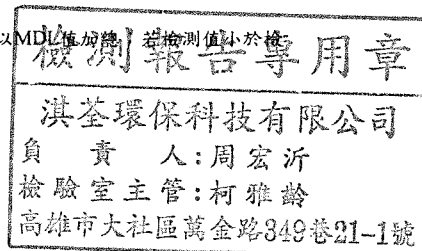 以MDL值加總，若檢測值小於檢
檢測報告專用章
淇荃環保科技有限公司
負責人：周宏沂
檢驗室主管：柯雅齡
高雄市大社區萬金路349巷21-1號